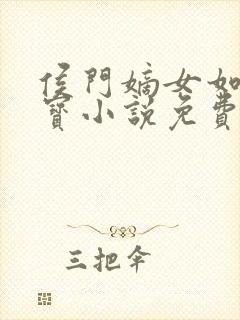 侯門嫡女如
寶小說免費
三把傘